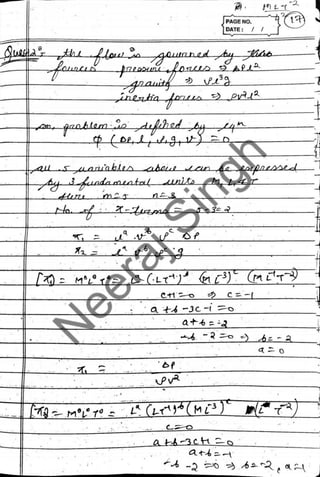 M L T⁻²
PAGE NO. 17
DATE: / /
Question 2: the flow is governed by
forces pressure forces ⇒ ΔPl²
gravity ⇒ ρl³g
inertia forces ⇒ ρv²l²
so, problem is defined by eqⁿ
φ (ΔP, l, ρ, g, v) = 0
all 5 variables above can be expressed
by 3 fundamental units M, L, T
Here m=5 n=3
No. of π-terms = 5-3=2
π₁ = lᵃ vᵇ ρᶜ ΔP
π₂ = lᵃ vᵇ ρᶜ g
[π₁] = M⁰L⁰T⁰ = Lᵃ (LT⁻¹)ᵇ (ML⁻³)ᶜ (ML⁻¹T⁻²)
c+1=0 ⇒ c=-1
a+b-3c-1=0
a+b=-2
-b-2=0 ⇒ b=-2
a=0
π₁ = ΔP
ρv²
[π₂] = M⁰L⁰T⁰ = Lᵃ (LT⁻¹)ᵇ (ML⁻³)ᶜ (LT⁻²)
c=0
a+b-3c+1=0
a+b=-1
-b-2=0 ⇒ b=-2, a=1
Neeraj Singh